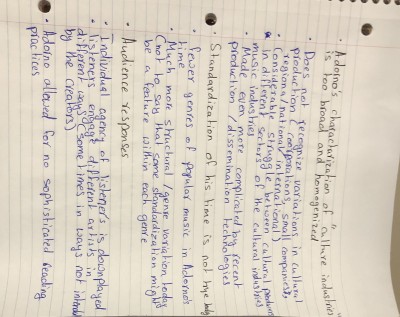 • Adorno's characterization of "culture industries"
is too broad and homogenized
• Does not recognize variations in cultural
production (corporations, small companies,
regional/national/international)
• Considerable struggle between cultural producers
in different sectors of the cultural industries
music industries
• Made even more complicated by recent
production/dissemination technologies
• Standardization of his time is not the
• fewer genres of popular music in Adorno's
time
• Much more structural/genre variation today
(not to say that some standardization might
be a feature within each genre
• Audience responses
• Individual agency of listeners is downplayed
• listeners engage different artists in
different ways (some times in ways not
by the creators)
• Adorno allowed for no sophisticated reading
practices